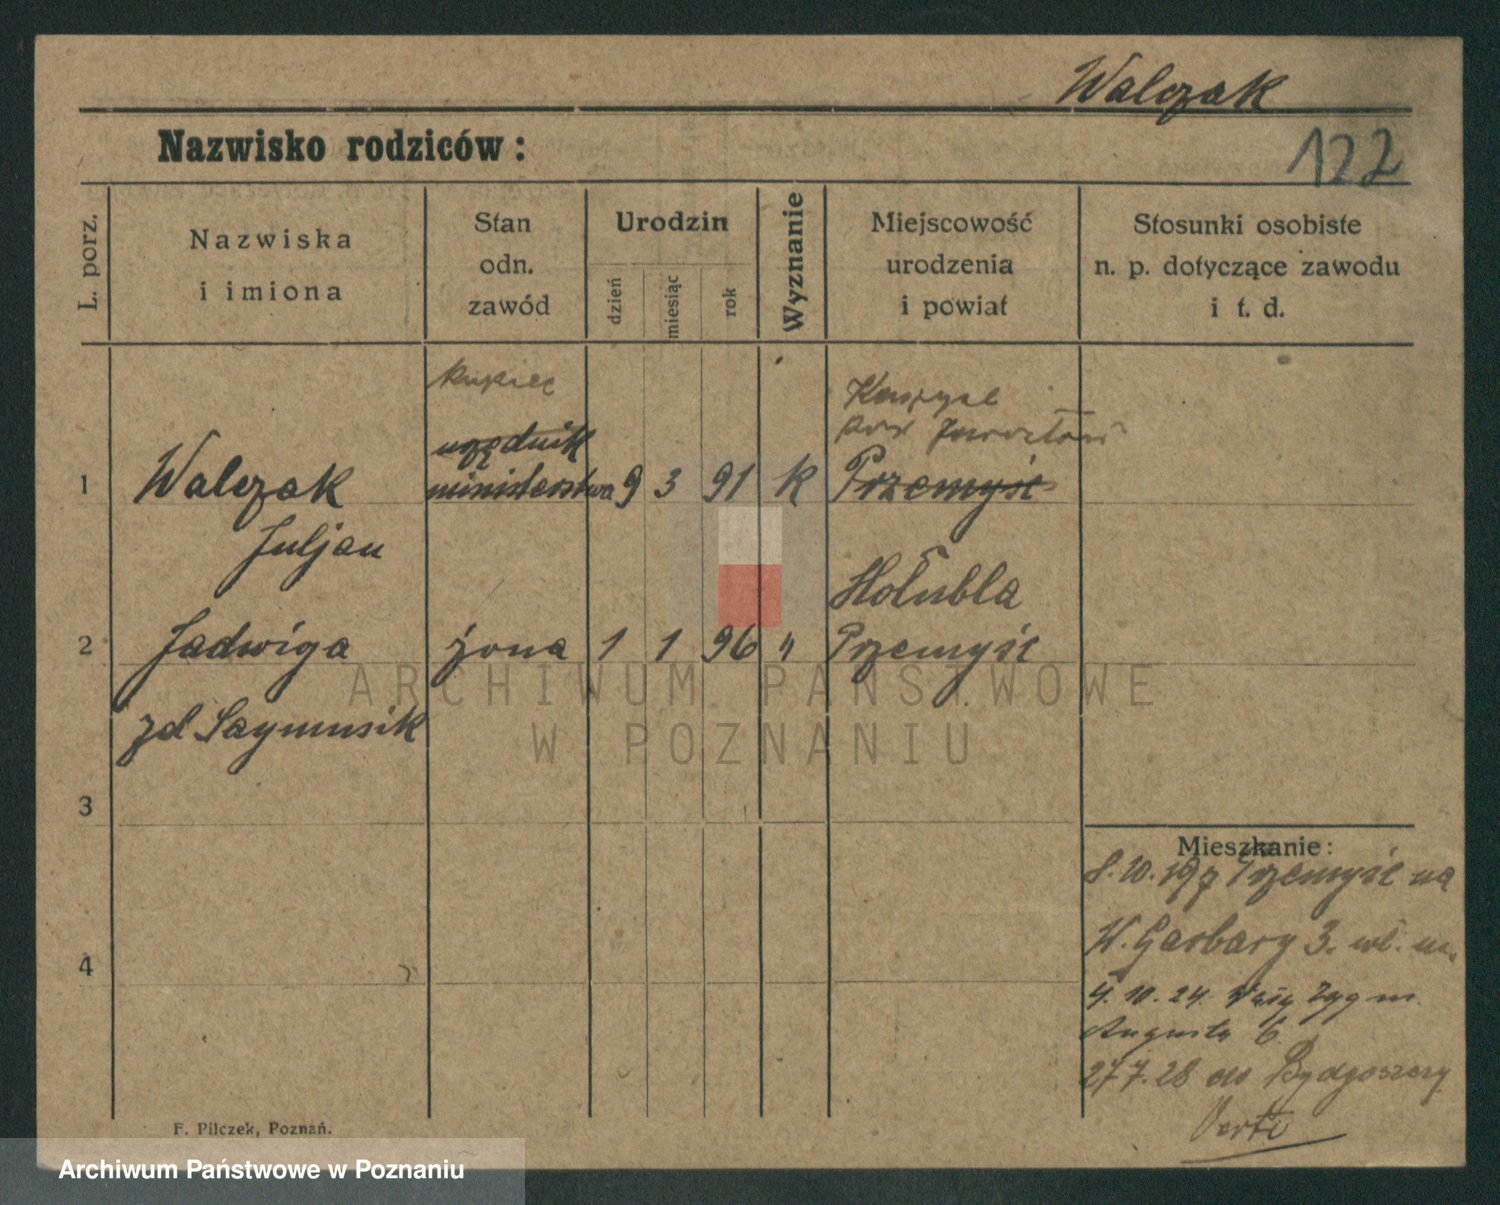 Walczak
Nazwisko rodziców:
122
L. porz.
Nazwiska
i imiona
Stan
odn.
zawód
Urodzin
dzień
miesiąc
rok
Wyznanie
Miejscowość
urodzenia
i powiat
Stosunki osobiste
n. p. dotyczące zawodu
i t. d.
kupiec
urzędnik
1 Walczak ministerstwa 9 3 91 k Przemyśl
Juljan
Hołubla
2 Jadwiga żona 1 1 96 " Przemyśl
zd
ARCHIWUM PAŃSTWOWE
W POZNANIU
3
Mieszkanie:
8. 10. Przemyśl na
W. Garbary 3. wł. m.
4
4. 10. 24. Zygm.
Augusta 6
27 7. 28 do Bydgoszczy
Verte
F. Pilczek, Poznań.
Archiwum Państwowe w Poznaniu